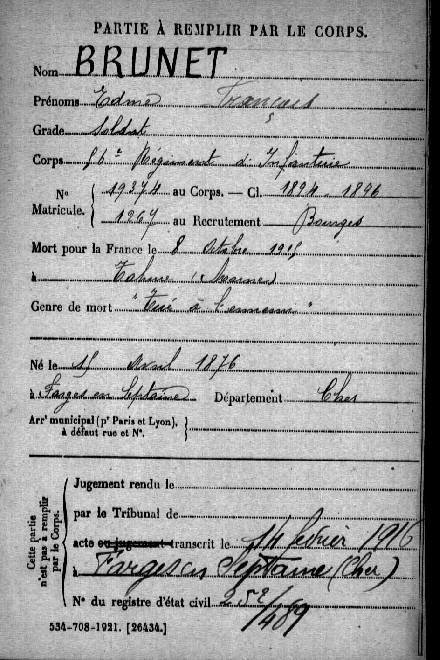 PARTIE À REMPLIR PAR LE CORPS.
Nom BRUNET
Prénoms Edme François
Grade Soldat
Corps 56e Régiment d'Infanterie
No Matricule. { 19374 au Corps. — Cl. 1894 - 1896
1267 au Recrutement Bourges
Mort pour la France le 8 octobre 1915
à Tahure (Marne)
Genre de mort "Tué à l'ennemi"
Né le 15 Avril 1876
à Farges en Septaine Département Cher
Arrt municipal (pr Paris et Lyon), à défaut rue et No. }
Cette partie n'est pas à remplir par le Corps.
Jugement rendu le
par le Tribunal de
acte ou jugement transcrit le 14 février 1916
à Farges en Septaine (Cher)
No du registre d'état civil
/489
534-708-1921. [26434.]